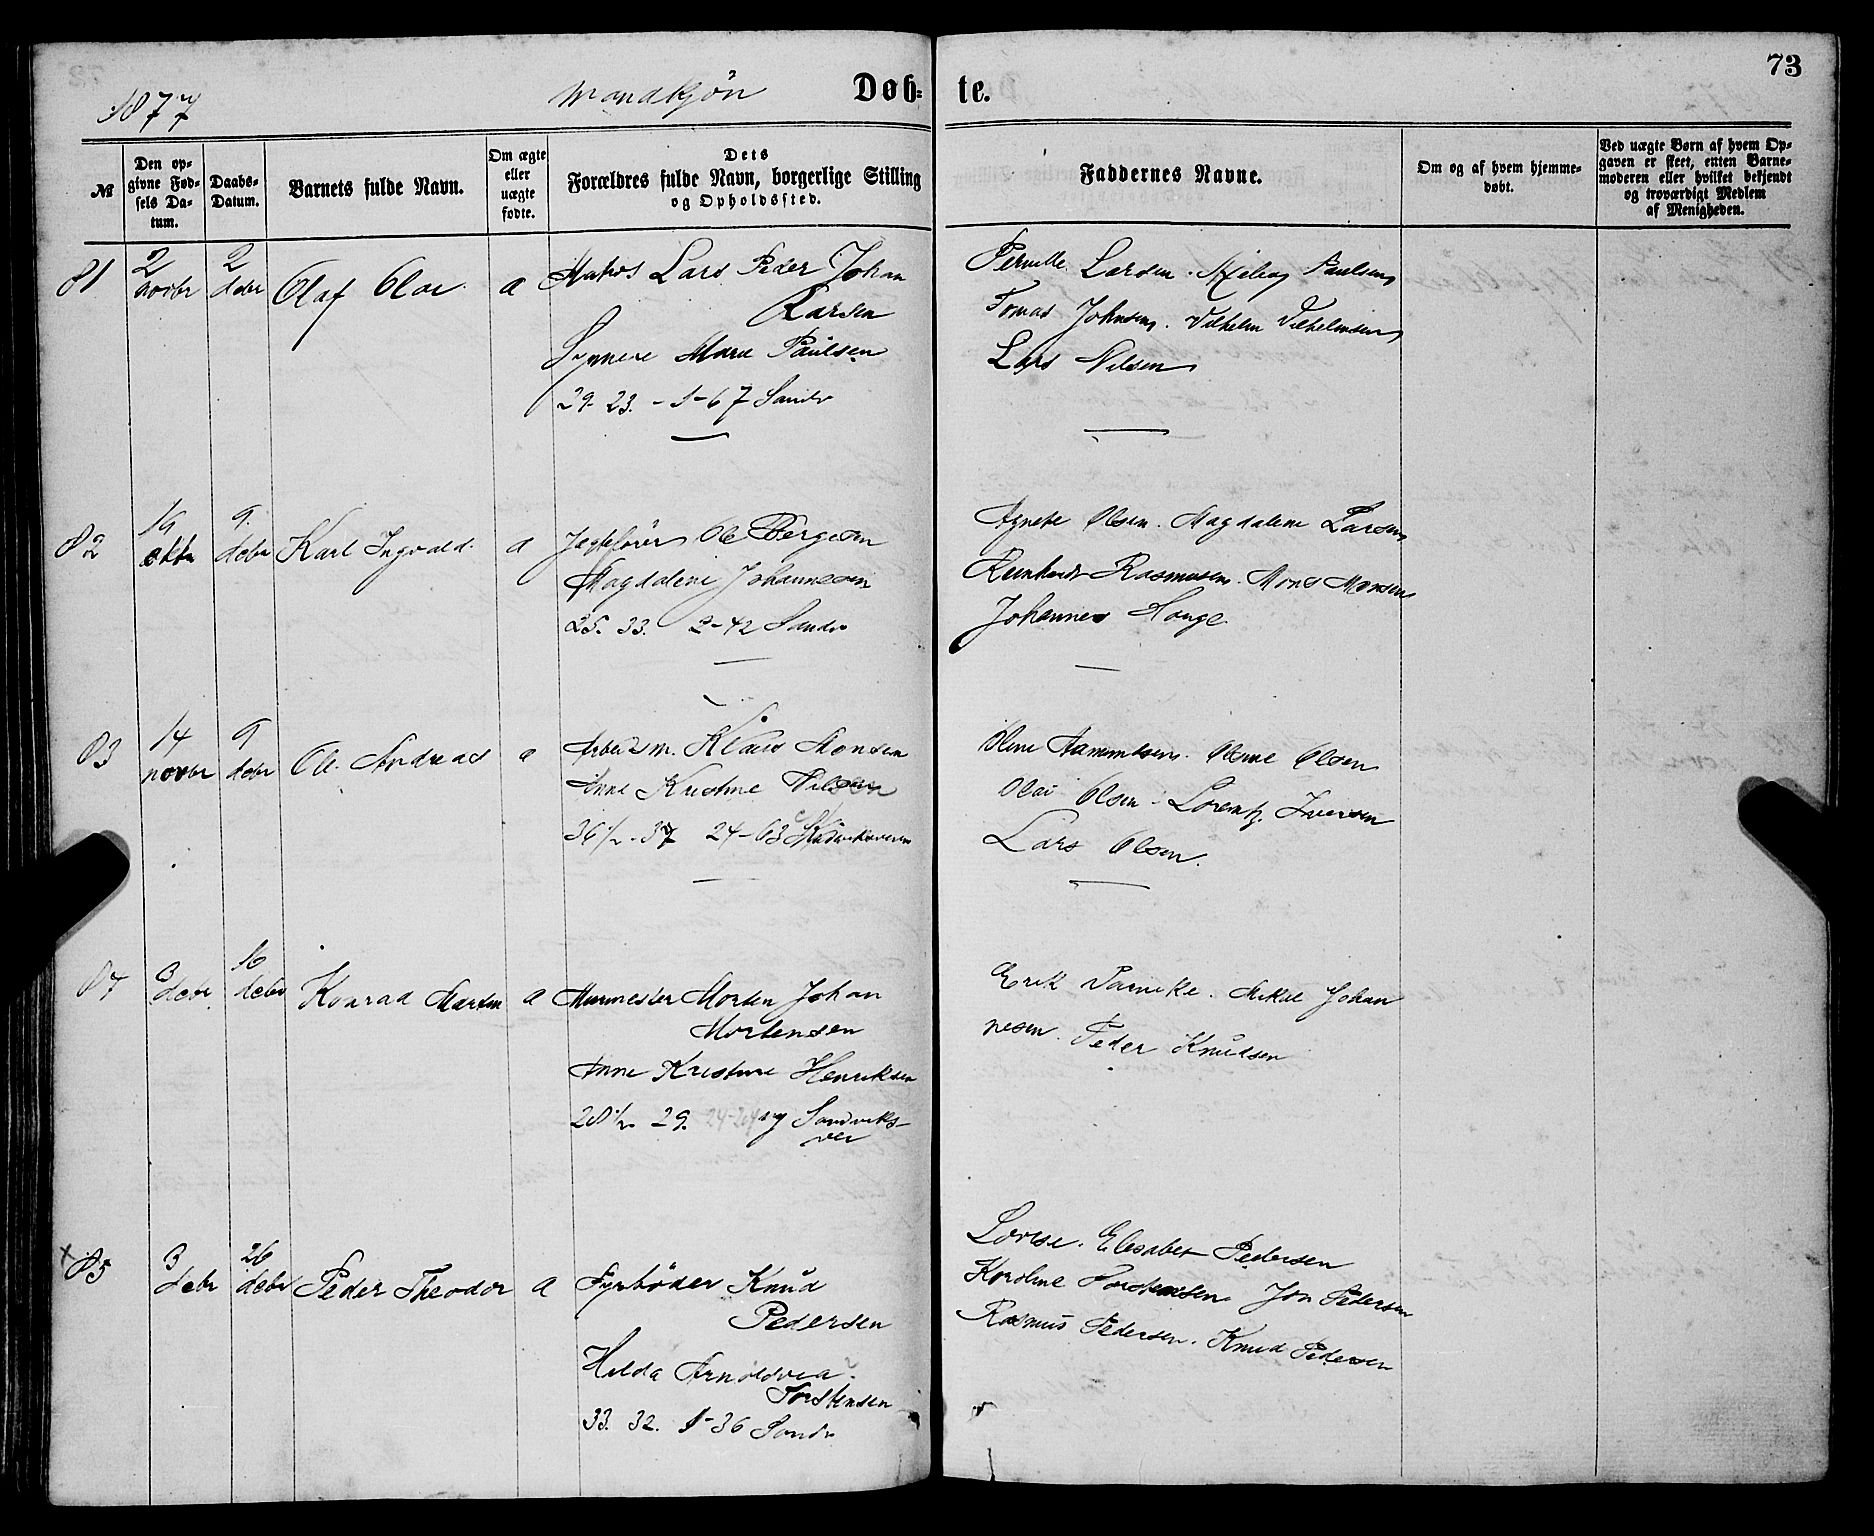 73
1877 Mandkjön Døb- te.
№
Den op-
givne Fød-
sels Da-
tum.
Daabs-
Datum.
Barnets fulde Navn.
Om ægte
eller
uægte
fødte.
Dets
Forældres fulde Navn, borgerlige Stilling
og Opholdssted.
Faddernes Navne.
Om og af hvem hjemme-
døbt.
Ved uægte Børn af hvem Op-
gaven er skeet, enten Barne-
moderen eller hvilket bekjendt
og troværdigt Medlem
af Menigheden.
81
2
novbr
2
debr
Olaf Olai
a
Matros Lars Peder Johan
Larsen
Synneve Marie Paulsen
29. 23. - 1-67 Sandv
Pernille Larsen. Paulsen
Tomas Johnsen. Vilhelm Vilhelmsen
Lars Nilsen
82
19
oktbr
9.
debr
Karl Ingvald.
a
Jegtefører Ole Bergesen
Magdalene Johannesen
25. 33. 2-42 Sandv
Agnete Olsen. Magdalene Larsen
Reinhardt Rasmussen. Mons Monsen
Johannes Hauge.
83
14
novbr
9
debr
Ole Andreas
a
Arbeidsm. Klaus Monsen
Anne Kristine Nilsen
36½ - 37 24-63
Oline Olsen
Olai Olsen. Lorentz Iversen
Lars Olsen.
84
3
debr
16
debr
Konrad Marten
a
Murmester Morten Johan
Mortensen
Anne Kristine Henriksen
28½ 29. Sandviks-
vei
Erik Mikal Johan
nesen. Peder Knudsen
x 85
3
debr
26
debr
Peder Theodor
a
Fyrbøder Knud
Pedersen
Hilda
Torstensen
33. 32. 1-36 Sandv
Lovise. Elesabet Pedersen
Karoline Torstensen Jon Pedersen
Rasmus Pedersen. Knud Pedersen